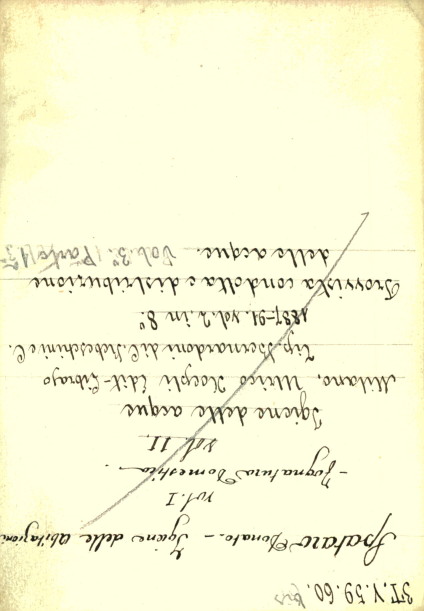 3T.V.59.60. bis
Spataro Donato. - Igiene delle abitazioni
vol. I
- Fognatura Domestica -
vol. II.
Igiene delle acque
Milano, Ulrico Hoepli Edit-Librajo
Tip. Bernardoni di C. Rebeschini e C.
1887-91. vol. 2 in 8º
Provvista condotta e distribuzione
delle acque. Vol. 3º (Parte 1ª)